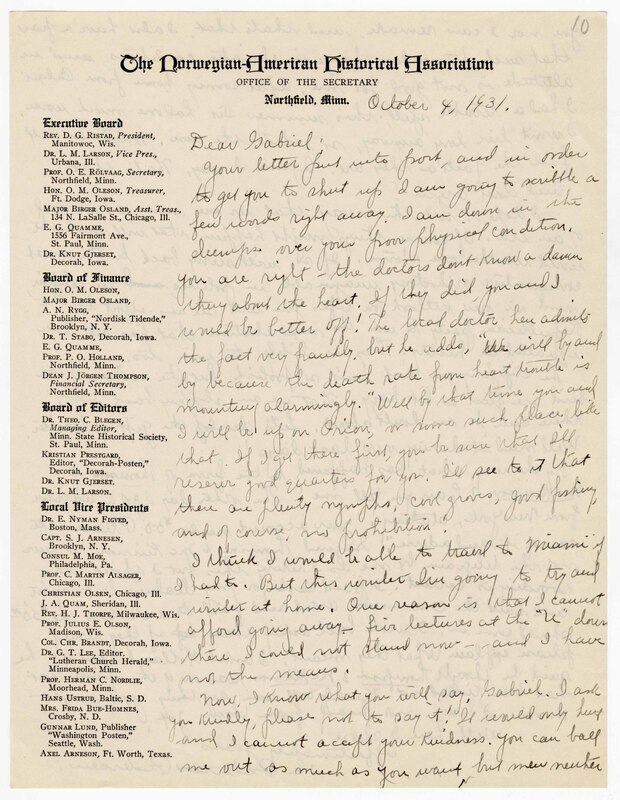 10
The Norwegian-American Historical Association
OFFICE OF THE SECRETARY
Northfield, Minn.
October 4, 1931.
Executive Board
REV. D. G. RISTAD, President,
Manitowoc, Wis.
DR. L. M. LARSON, Vice Pres.,
Urbana, Ill.
PROF. O. E. RÖLVAAG, Secretary,
Northfield, Minn.
HON. O. M. OLESON, Treasurer,
Ft. Dodge, Iowa.
MAJOR BIRGER OSLAND, Asst. Treas.,
134 N. LaSalle St., Chicago, Ill.
E. G. QUAMME,
1556 Fairmont Ave.,
St. Paul, Minn.
DR. KNUT GJERSET,
Decorah, Iowa.
Board of Finance
HON. O. M. OLESON,
MAJOR BIRGER OSLAND,
A. N. RYGG,
Publisher, "Nordisk Tidende,"
Brooklyn, N. Y.
DR. T. STABO, Decorah, Iowa.
E. G. QUAMME,
PROF. P. O. HOLLAND,
Northfield, Minn.
DEAN J. JÖRGEN THOMPSON,
Financial Secretary,
Northfield, Minn.
Board of Editors
DR. THEO. C. BLEGEN,
Managing Editor,
Minn. State Historical Society,
St. Paul, Minn.
KRISTIAN PRESTGARD,
Editor, "Decorah-Posten,"
Decorah, Iowa.
DR. KNUT GJERSET.
DR. L. M. LARSON.
Local Vice Presidents
DR. E. NYMAN FIGVED,
Boston, Mass.
CAPT. S. J. ARNESEN,
Brooklyn, N. Y.
CONSUL M. MOE,
Philadelphia, Pa.
PROF. C. MARTIN ALSAGER,
Chicago, Ill.
CHRISTIAN OLSEN, Chicago, Ill.
J. A. QUAM, Sheridan, Ill.
REV. H. J. THORPE, Milwaukee, Wis.
PROF. JULIUS E. OLSON,
Madison, Wis.
COL. CHR. BRANDT, Decorah, Iowa.
DR. G. T. LEE, Editor,
"Lutheran Church Herald,"
Minneapolis, Minn.
PROF. HERMAN C. NORDLIE,
Moorhead, Minn.
HANS USTRUD, Baltic, S. D.
MRS. FRIDA BUE-HOMNES,
Crosby, N. D.
GUNNAR LUND, Publisher
"Washington Posten,"
Seattle, Wash.
AXEL ARNESEN, Ft. Worth, Texas.
Dear Gabriel:
Your letter put into port, and in order
to get you to shut up I am going to scribble a
few words right away. I am down in the
dumps over your poor physical condition.
you are right – the doctors don't know a damn
thing about the heart. If they did you and I
would be better off! The local doctor here admits
the fact very frankly, but he adds, "We will by and
by because the death rate from heart trouble is
mounting alarmingly." Well by that time you and
I will be up on Orion, or some such place like
that. If I get there first, you be sure that I'll
reserve good quarters for you. I'll see to it that
there are plenty nymphs, cool groves, good fishing,
and of course, no prohibition!
I think I would be able to travel to Miami if
I had to. But this winter I'm going to try and
winter at home. One reason is that I cannot
afford going away – five lectures at the "U" down
there I could not stand now – and I have
not the means.
Now, I know what you will say, Gabriel. I ask
you kindly, please not to say it! It would only hurt
and I cannot accept your kindness. You can ball
me out as much as you want, but mew neither